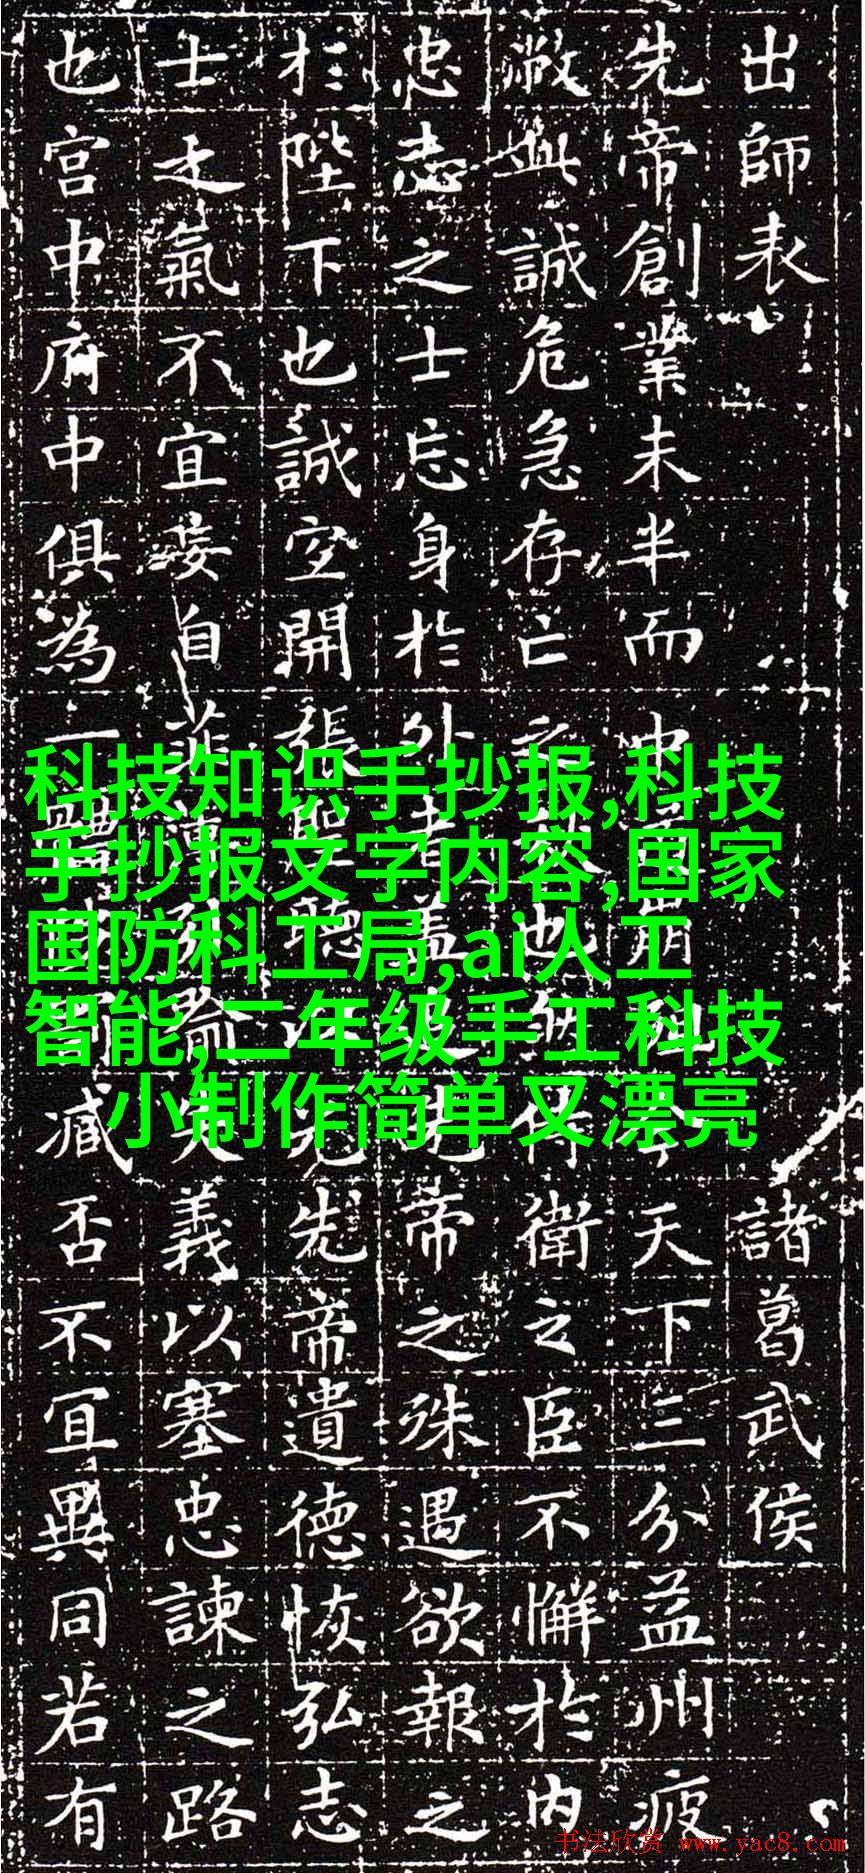 出師表 諸葛武侯
先帝創業未半而中崩殂今天下三分益州疲
敝此誠危急存亡之秋也然侍衛之臣不懈於内
忠志之士忘身於外者盖先帝之殊遇欲報之
於陛下也誠宜開張聖聽以光先帝遺德恢弘志
士之氣不宜妄自菲薄喻失義以塞忠諫之路
也宫中府中俱為一體臧否不宜異同若有
科技知识手抄报,科技
手抄报文字内容,国家
国防科工局,ai人工
智能,二年级手工科技
小制作简单又漂亮
书法欣赏 www.yac8.com